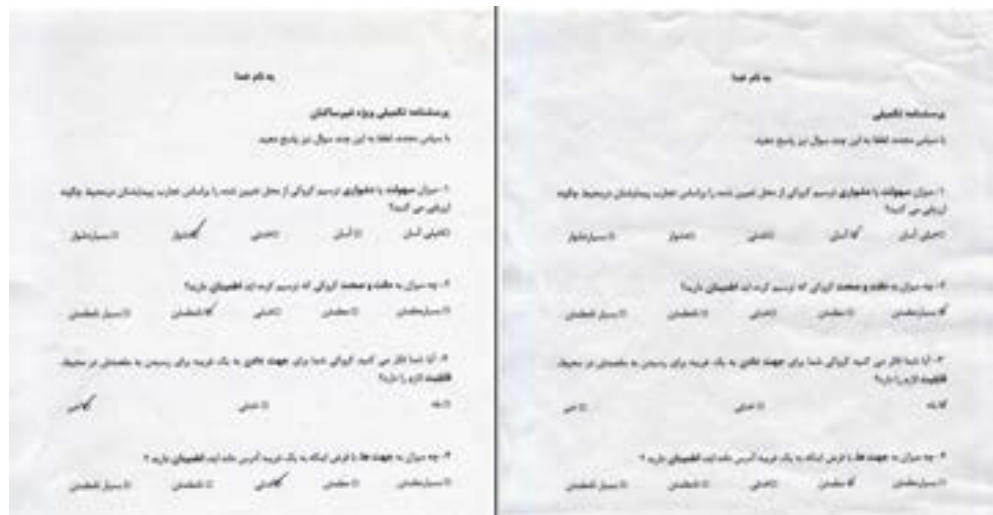 به نام خدا
پرسشنامه تکمیلی
با سپاس مجدد، لطفا به این چند سوال نیز پاسخ دهید.
۱- میزان سهولت یا دشواری ترسیم کروکی از محل تعیین شده را براساس تجارب پیمایشتان درمحیط چگونه
ارزیابی می کنید؟
خیلی آسان آسان خنثی دشوار بسیاردشوار
۲- چه میزان به دقت و صحت کروکی که ترسیم کرده اید، اطمینان دارید؟
بسیارمطمئن مطمئن خنثی نامطمئن بسیار نامطمئن
۳- آیا شما فکر می کنید کروکی شما برای جهت یافتن به یک غریبه برای رسیدن به مقصدش در محیط،
قابلیت لازم را دارد؟
بله خنثی خیر
۴- چه میزان به جهت ها، با فرض اینکه به یک غریبه آدرس داده اید، اطمینان دارید ؟
بسیارمطمئن مطمئن خنثی نامطمئن بسیار نامطمئن
به نام خدا
پرسشنامه تکمیلی ویژه غیرساکنان
با سپاس مجدد، لطفا به این چند سوال نیز پاسخ دهید.
۱- میزان سهولت یا دشواری ترسیم کروکی از محل تعیین شده را براساس تجارب پیمایشتان درمحیط چگونه
ارزیابی می کنید؟
خیلی آسان آسان خنثی دشوار بسیاردشوار
۲- چه میزان به دقت و صحت کروکی که ترسیم کرده اید، اطمینان دارید؟
بسیارمطمئن مطمئن خنثی نامطمئن بسیار نامطمئن
آیا شما فکر می کنید کروکی شما برای جهت یافتن به یک غریبه برای رسیدن به مقصدش در محیط،
قابلیت لازم را دارد؟
بله خنثی خیر
۴- چه میزان به جهت ها، با فرض اینکه به یک غریبه آدرس داده اید، اطمینان دارید ؟
بسیارمطمئن مطمئن خنثی نامطمئن بسیار نامطمئن